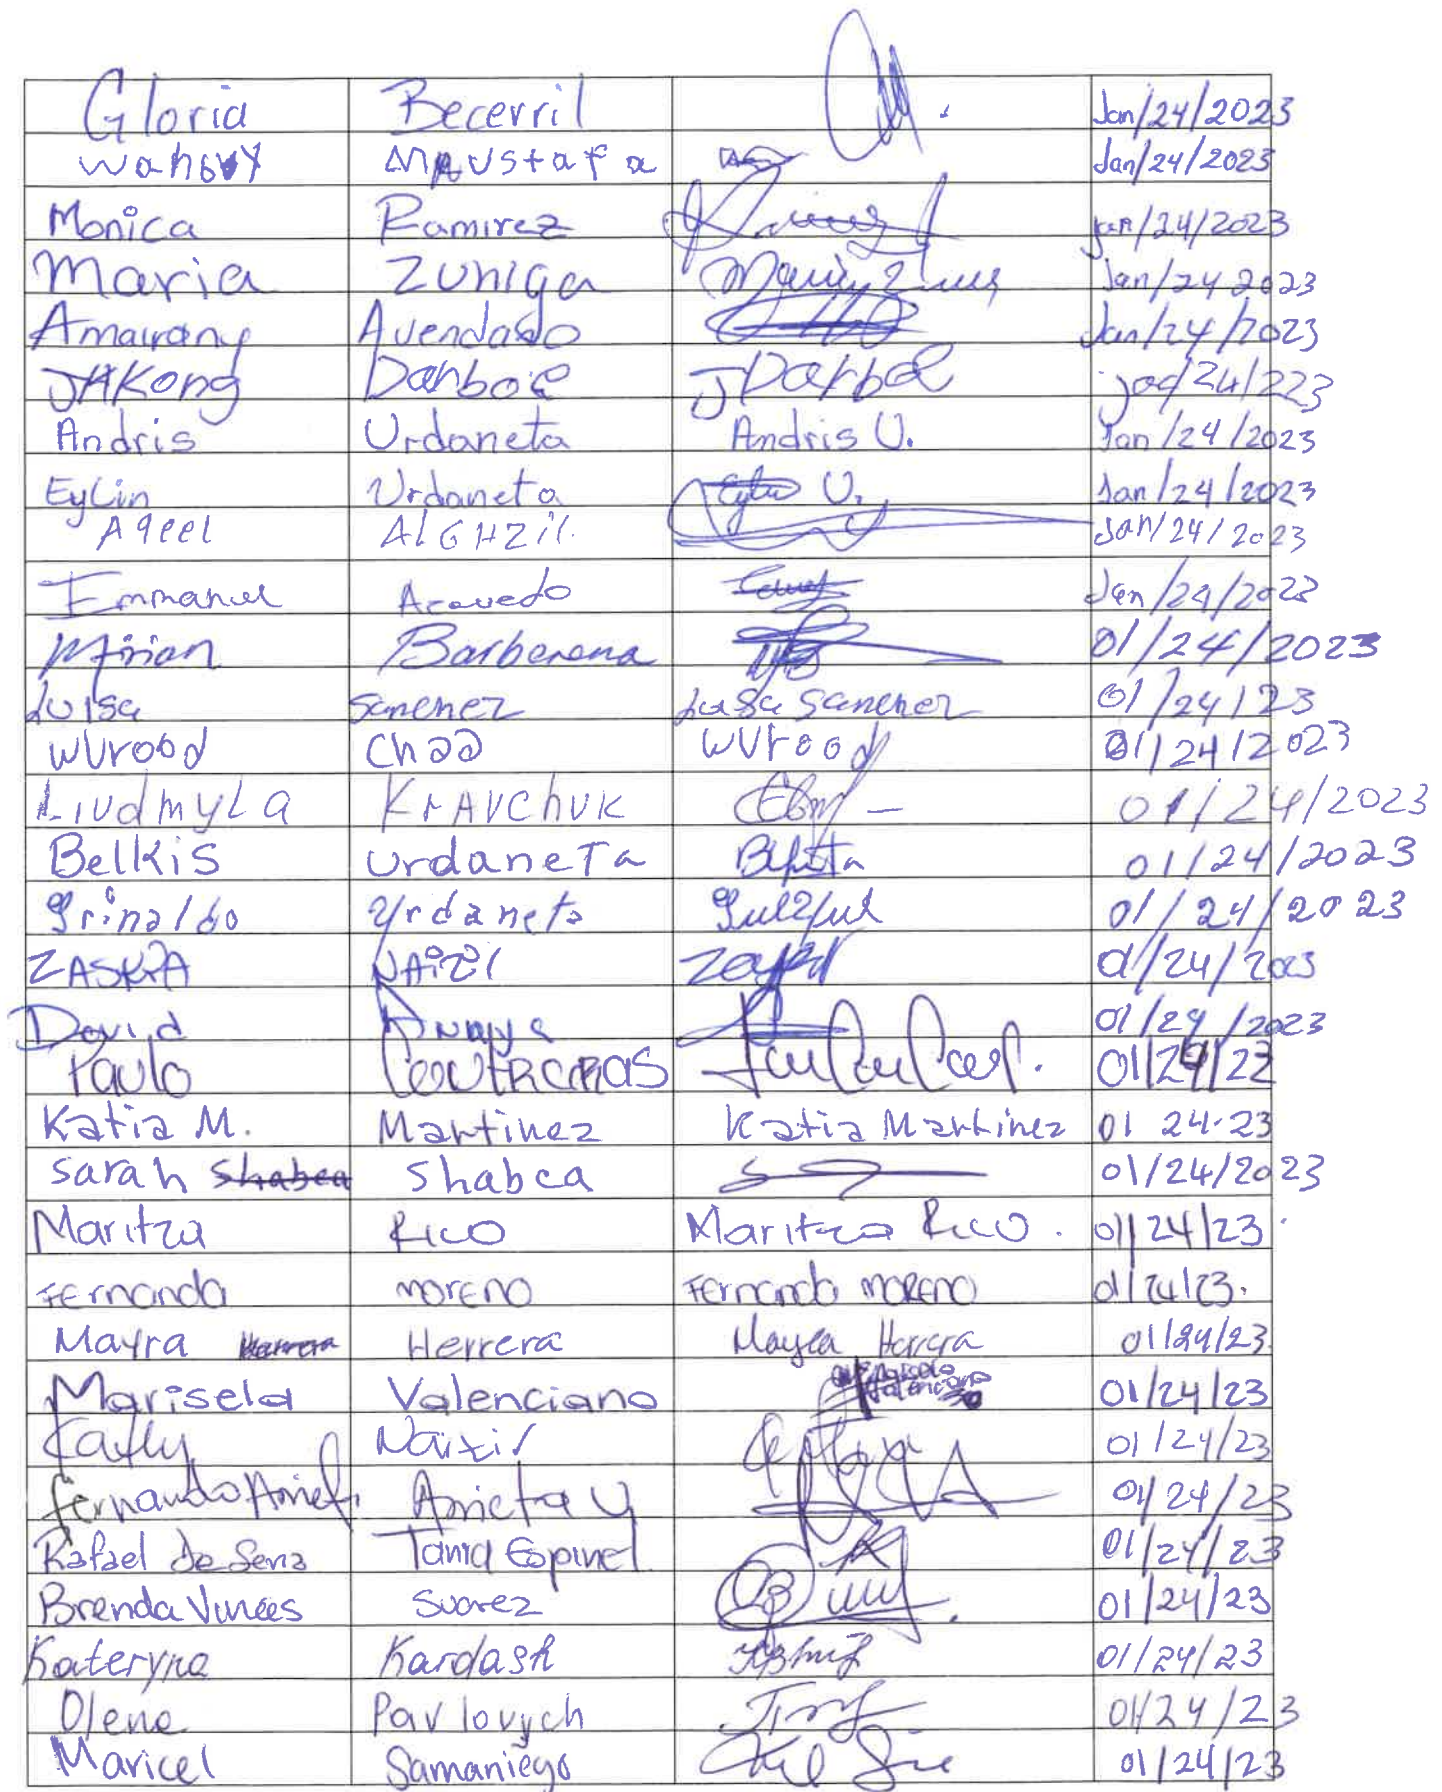 Gloria Becerril Jan/24/2023
Wahbvy Maustafa Jan/24/2023
Monica Ramirez jan/24/2023
Maria Zuniga Jan/24 2023
Amairany Avendaño Jan/24/2023
JAKong Darboe J Darboe /24/223
Andris Urdaneta Andris U. Jan/24/2023
Eylin Urdaneta Eylin U. Jan/24/2023
Aqeel ALGHZil. Jan/24/2023
Emmanuel Acevedo Jan/24/2023
Mirian Barberena 01/24/2023
Luisa Sanchez Luisa Sanchez 01/24/23
Wurood Chaa Wurood 01/24/2023
Liudmyla KrAvchuk 01/24/2023
Belkis UrdaneTa 01/24/2023
Grinaldo Urdaneta 01/24/2023
ZASKIA NAizil 01/24/2023
David Anaya 01/24/2023
Paulo Contreras 01/24/23
Katia M. Martinez Katia Martinez 01 24-23
Sarah Shabea Shabea 01/24/2023
Maritza Rico Maritza Rico. 01/24/23
Fernanda Moreno Fernanda Moreno 01/24/23.
Mayra Herrera Herrera Mayra Herrera 01/24/23
Marisela Valenciano Marisela Valenciano 01/24/23
Naizir 01/24/23
Fernando Arriet Arrieta U 01/24/23
Rafael De Sena Tania Espinel 01/24/23
Brenda Vinces Suarez 01/24/23
Kateryna Kardash 01/24/23
Olena Pavlovych 01/24/23
Maricel Samaniego 01/24/23